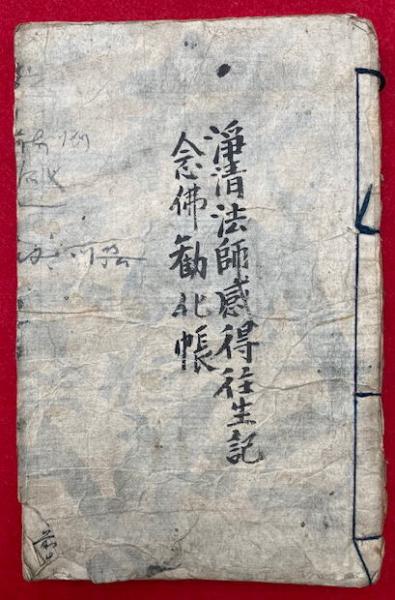 淨清法師感得往生記
念佛勸化帳